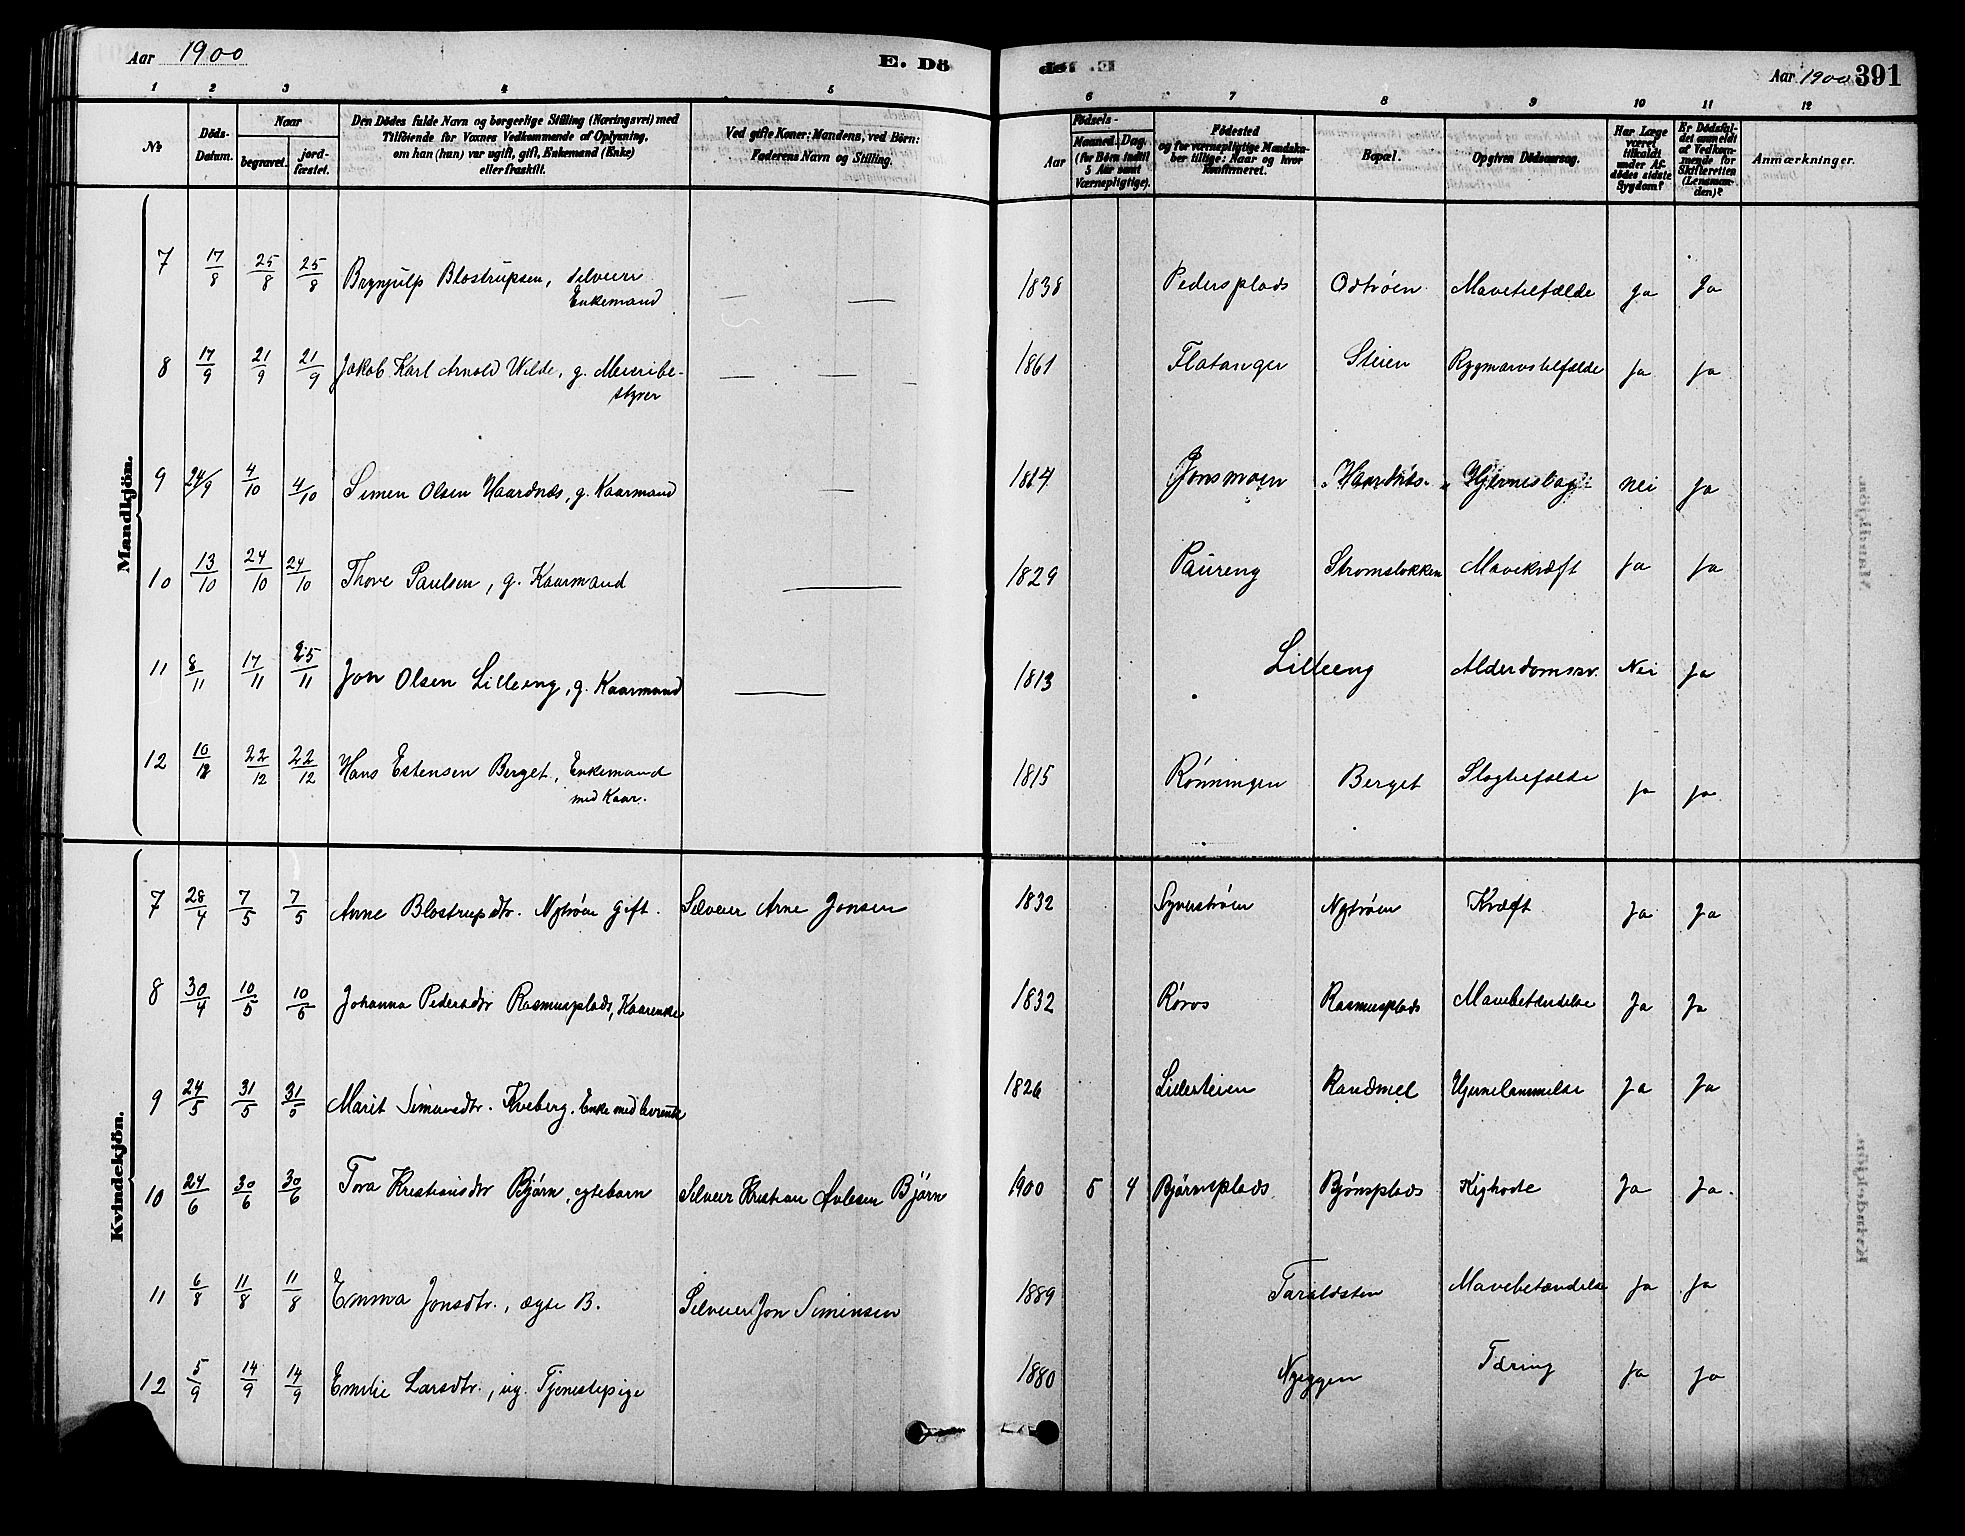 Aar 1900
E. Dö
Aar 1900 391
1 2 3 4 5 6 7 8 9 10 11 12
No
Döds-Datum.
Naar
begravet.
jord-fæstet.
Den Dödes fulde Navn og borgerlige Stilling (Næringsvei) med
Tilföiende for Voxnes Vedkommende af Oplysning,
om han (hun) var ugift, gift, Enkemand (Enke)
eller fraskilt.
Ved gifte Koner: Mandens, ved Börn:
Faderens Navn og Stilling.
Födsels-
Aar
Maaned. Dag.
(for Börn indtil
5 Aar samt
Værnepligtige).
Födested
og for værnepligtige Mandska-
ber tillige: Naar og hvor
konfirmeret.
Bopæl.
Opgiven Dödsaarsag.
Har Læge
været
tilkaldt
under Af-
dödes sidste
Sygdom?
Er Dödsfal-
det anmeldt
af Vedkom-
mende for
Skifteretten
(Lensman-
den)?
Anmærkninger.
Mandkjön.
7 17/8 25/8 25/8 Brynjulf Blostrupsen, selveier
Enkemand — — 1838 Pedersplads Odtröen Mavetilfælde Ja Ja
8 17/9 21/9 21/9 Jakob Karl Arnold Wilde, g. Meieribe-
styrer — — — 1861 Flatanger Steien Rygmarvstilfælde Ja Ja
9 24/9 4/10 4/10 Simen Olsen Haardnæs, g. Kaarmand — Jonsmoen Nei Ja
10 13/10 24/10 24/10 Thore Paulsen, g. Kaarmand — 1829 Paureng Mavekræft Ja Ja
11 8/11 17/11 25/11 Jon Olsen Lilleeng, g. Kaarmand — 1813 Lilleeng Alderdomssv. Nei Ja
12 10/12 22/12 22/12 Hans Estensen Berget, Enkemand
med Kaar. 1815 Rönningen Berget Slagtilfælde Ja Ja
Kvindekjön.
7 28/4 7/5 7/5 Anne Blostrupdtr. Nytröen gift. Selveier Arne Jonsen 1832 Syverströen Nytröen Kræft Ja Ja
8 30/4 10/5 10/5 Johanna Pedersdtr Rasmusplads, Kaarenke 1832 Röros Rasmusplads Mavebetændelse Ja Ja
9 24/5 31/5 31/5 Marit Simensdtr. Kveberg. Enke med 1826 Lillesteien Randmel Hjernelammelse Ja Ja
10 24/6 30/6 30/6 Tora Kristiansdtr Björn, egtebarn Selveier Kristian Avlesen Björn 1900 5 4 Björnsplads Björnsplads Kighoste Ja Ja.
11 6/8 11/8 11/8 Emma Jonsdtr., ægte B. Selveier Jon Simensen 1889 Taraldsten Mavebetændelse Ja Ja
12 5/9 14/9 14/9 Emilie Larsdtr., ug. Tjenestepige 1880 Nyeggen Tæring Ja Ja